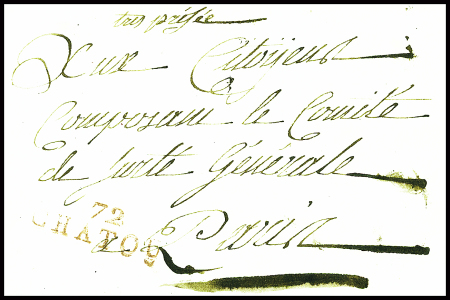 très pressée
Aux Citoÿens
Composant le Comité
de Surté Générale
72
CHATOU
a Paris